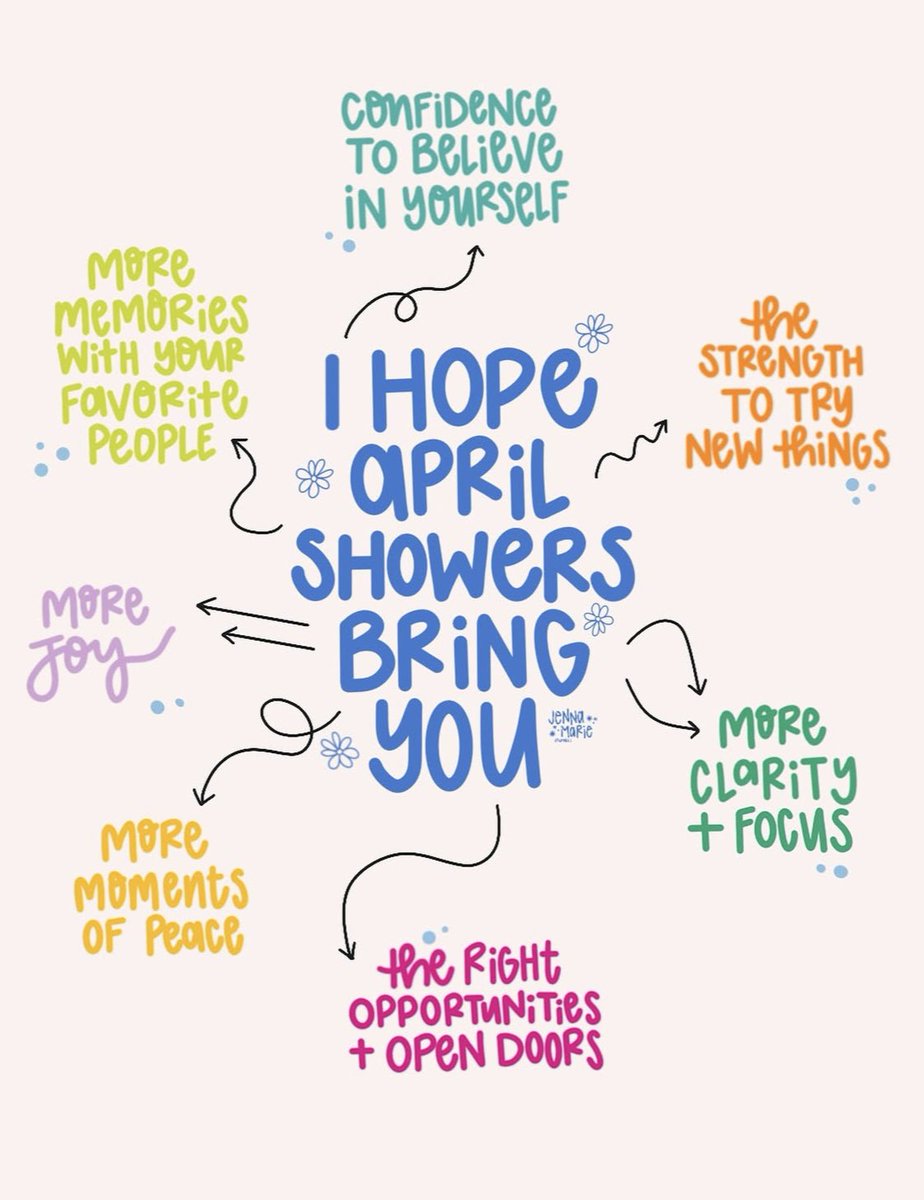 CONFIDENCE
TO BELIEVE
IN YOURSELF
MORE
MEMORIES
WITH YOUR
FAVORITE
PEOPLE
the
STRENGTH
TO TRY
NEW things
I HOPE
APRIL
SHOWERS
BRING
YOU
JENNA
MARIE
MORE
Joy
MORE
CLARITY
+ FOCUS
MORE
MOMENTS
OF Peace
the RIGHT
OPPORTUNITIES
+ OPEN DOORS